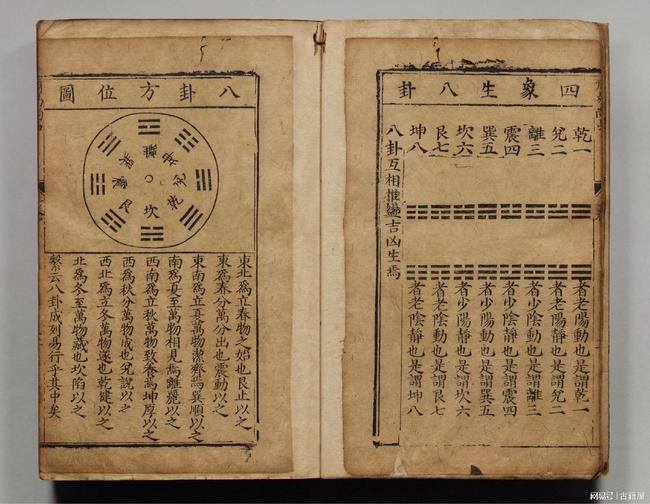 四象生八卦
乾一
兌二
離三
震四
巽五
坎六
艮七
坤八
者老陽動也是謂乾一
者老陽靜也是謂兌二
者少陰動也是謂離三
者少陰靜也是謂震四
者少陽動也是謂巽五
者少陽靜也是謂坎六
者老陰動也是謂艮七
者老陰靜也是謂坤八
八卦互相推盪吉凶生焉
八卦方位圖
離
坤
兌
乾
坎
艮
震
巽
東北爲立春物之始也艮止以之
東爲春分萬分出也震動以之
東南爲立夏萬物潔齊焉巽順以之
南爲夏至萬物相見焉離麗以之
西南爲立秋萬物致養焉坤厚以之
西爲秋分萬物成也兌說以之
西北爲立冬萬物遂也乾健以之
北爲冬至萬物藏也坎陷以之
繫云八卦成列易行乎其中矣
網易号 | 古籍屋